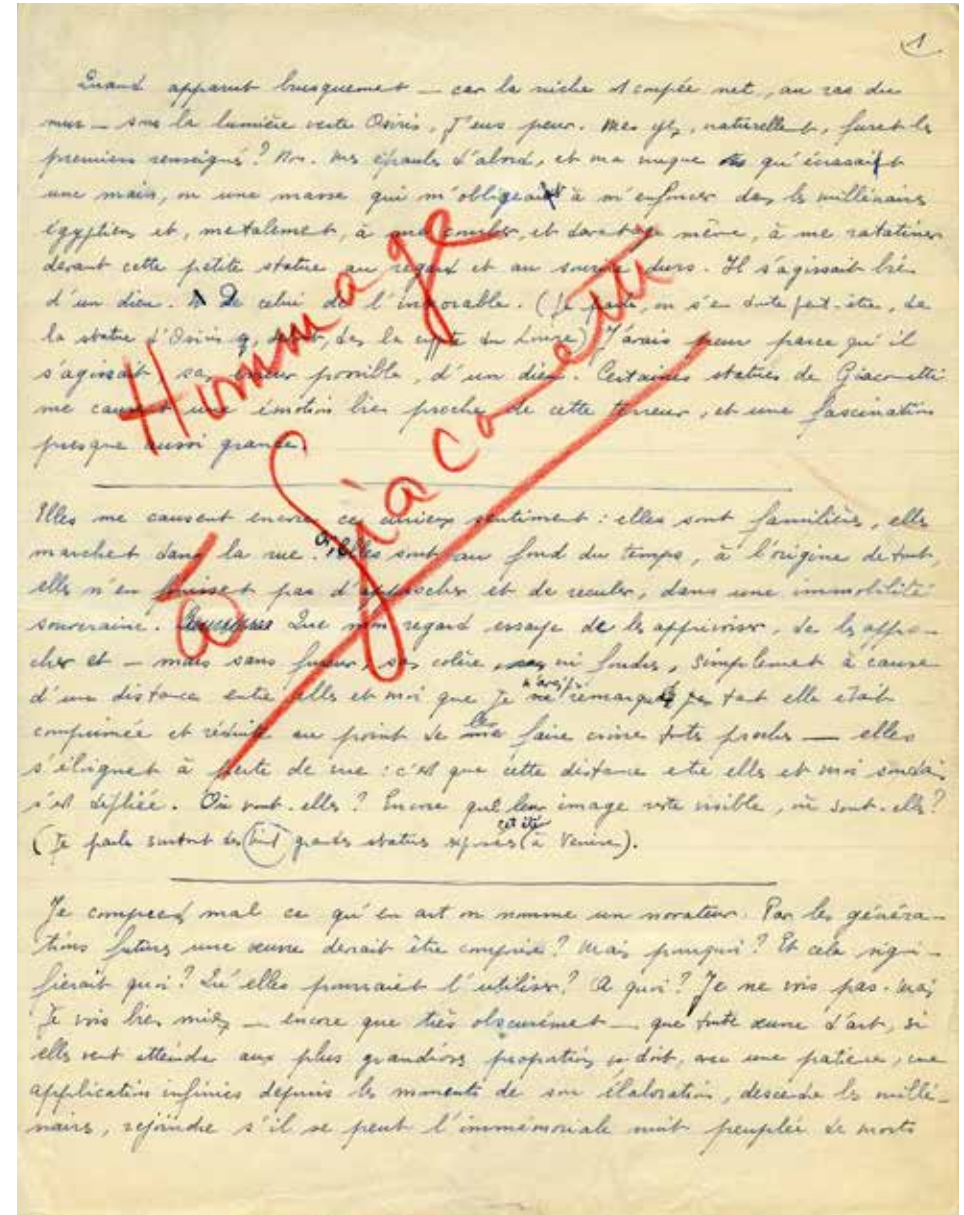 1
Quand apparut brusquement — car la niche est coupée net, au ras du
mur — sous la lumière verte Osiris, j'eus peur. Mes yx, naturellemt, furet les
premiers renseignés? Non. Mes épaules d'abord, et ma nuque qu'écrasait
une main, ou une masse qui m'obligeait à m'enfoncer dans les millénaires
égyptiens et, mentalement, à me courber, et davantage même, à me ratatiner
devant cette petite statue au regard et au sourire durs. Il s'agissait bien
d'un dieu. De celui de l'inexorable. (Je parle, on s'en doute peut-être, de
la statue d'Osiris debout, dans la crypte du Louvre) J'avais peur parce qu'il
s'agissait sans erreur possible, d'un dieu. Certaines statues de Giacometti
me causent une émotion bien proche de cette terreur, et une fascination
presque aussi grande.
Hommage
à Giacometti
Elles me causent encore ce curieux sentiment: elles sont familières, elles
marchent dans la rue. Or, elles sont au fond du temps, à l'origine de tout,
elles n'en finissent pas d'approcher et de reculer, dans une immobilité
souveraine. Que mon regard essaye de les apprivoiser, de les appro-
cher et — mais sans fureur, sans colère, ni foudres, simplement à cause
d'une distance entre elles et moi que je n'avais pas remarquée tant elle était
comprimée et réduite au point de les faire croire toutes proches — elles
s'éloignent à perte de vue: c'est que cette distance entre elles et moi soudain
s'est dépliée. Où vont-elles? Encore que leur image reste visible, où sont-elles?
(Je parle surtout des huit grandes statues exposées cet été à Venise).
Je comprends mal ce qu'en art on nomme un novateur. Par les généra-
tions futures une œuvre devrait être comprise? Mais pourquoi? Et cela signi-
fierait quoi? Qu'elles pourraient l'utiliser? A quoi? Je ne vois pas. Mais
je vois bien mieux — encore que très obscurément — que toute œuvre d'art, si
elle veut atteindre aux plus grandioses proportions doit, avec une patience, une
application infinies depuis les moments de son élaboration, descendre les millé-
naires, rejoindre s'il se peut l'immémoriale nuit peuplée de morts